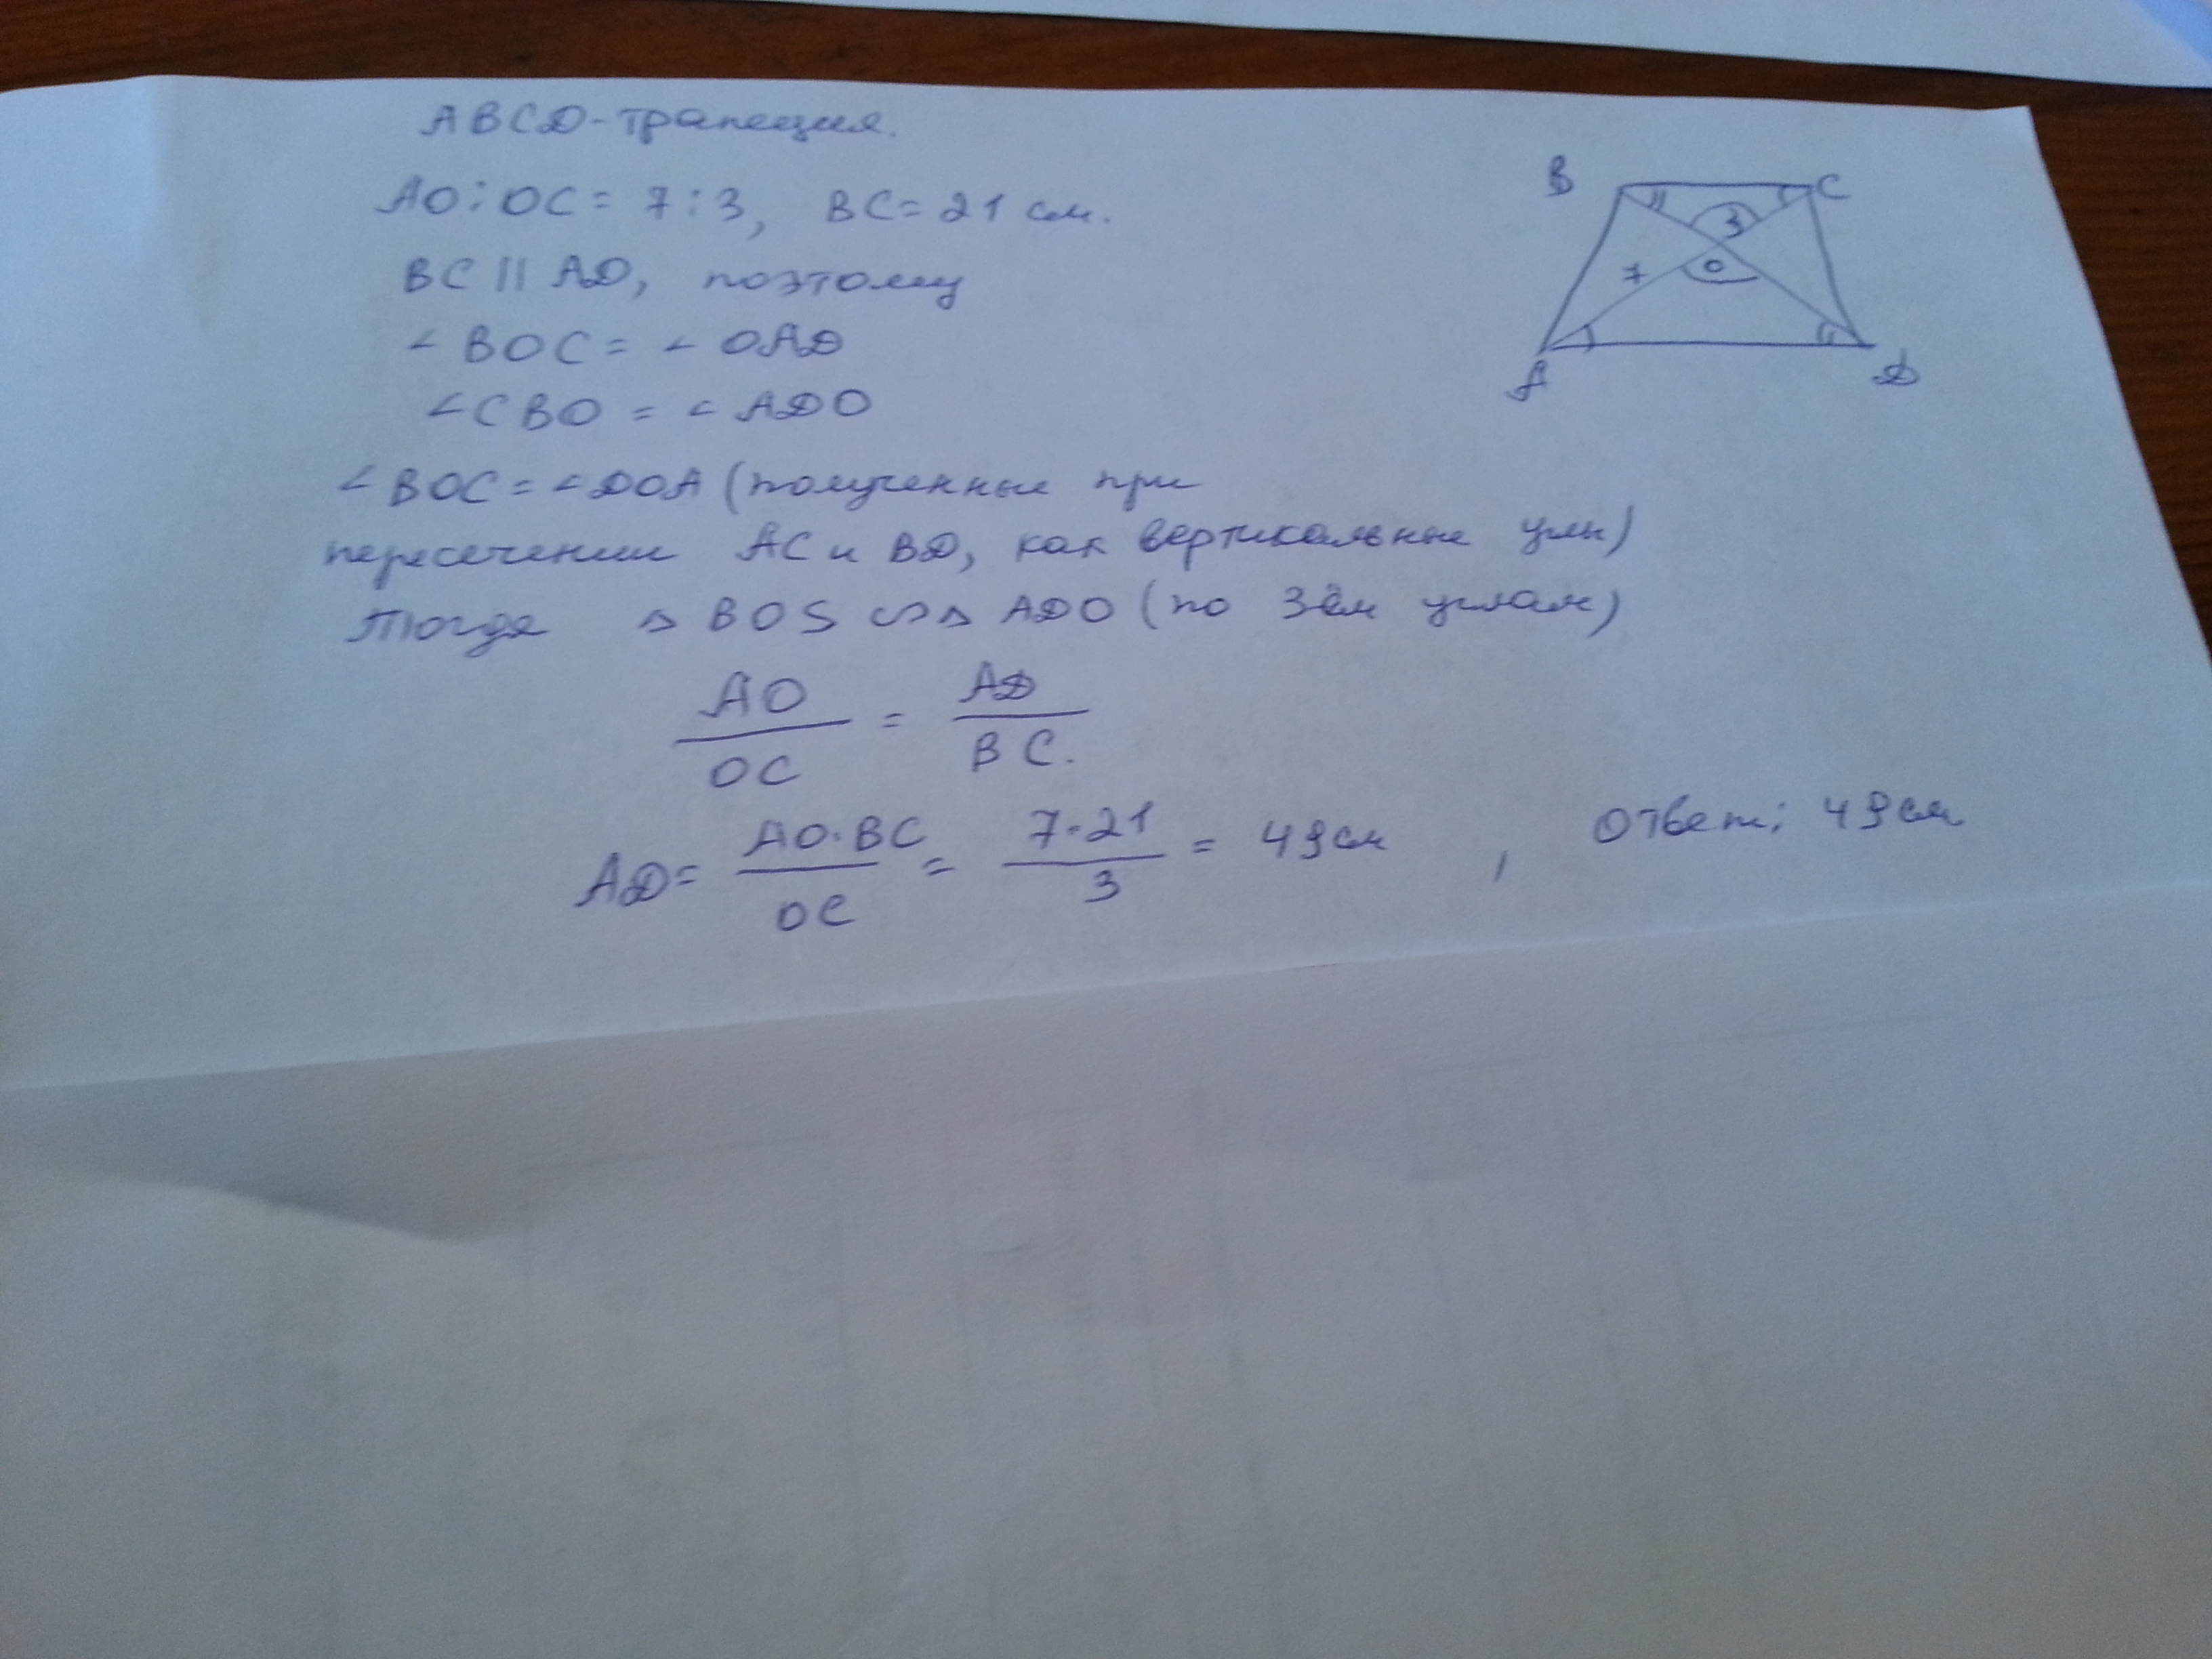 ABCD-трапеция.
AO:OC = 7:3, BC = 21 см.
BC || AD, поэтому
∠BOC = ∠OAD
∠CBO = ∠ADO
∠BOC = ∠DOA (полученные при
пересечении AC и BD, как вертикальные углы)
Тогда △BOS ∽ △ADO (по 3ём углам)
AO/OC = AD/BC.
AD = AO·BC/OC = 7·21/3 = 49 см, Ответ: 49 см
B C
3
7 O
A D